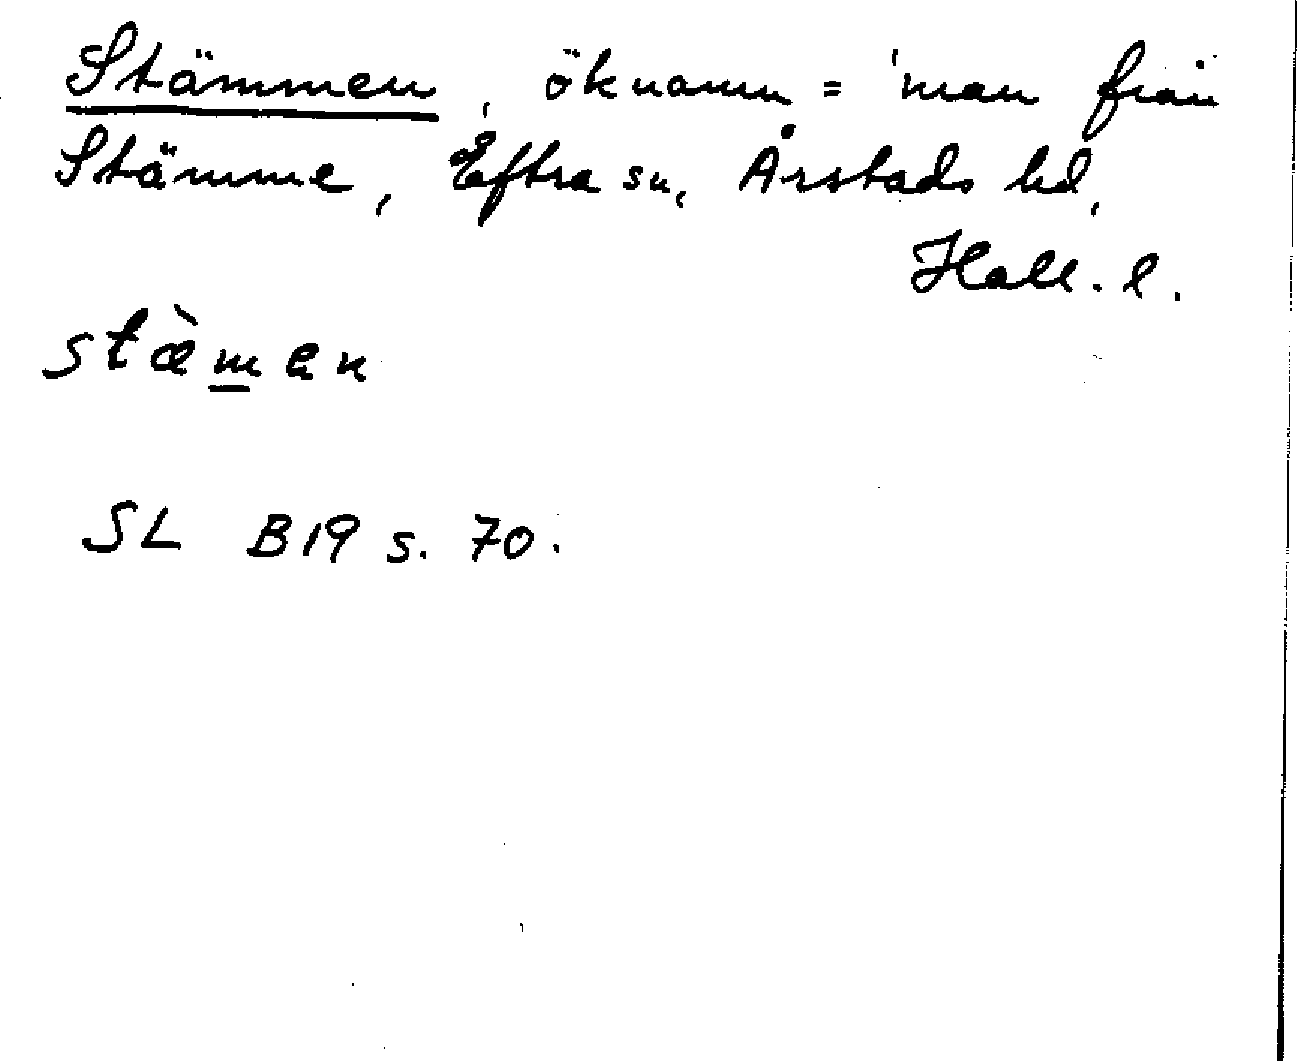 Stämmen, öknamn = 'man från
Stämme, Eftra sn, Årstads hd,
Hall. l.
stæ̀men
SL B19 s. 70.